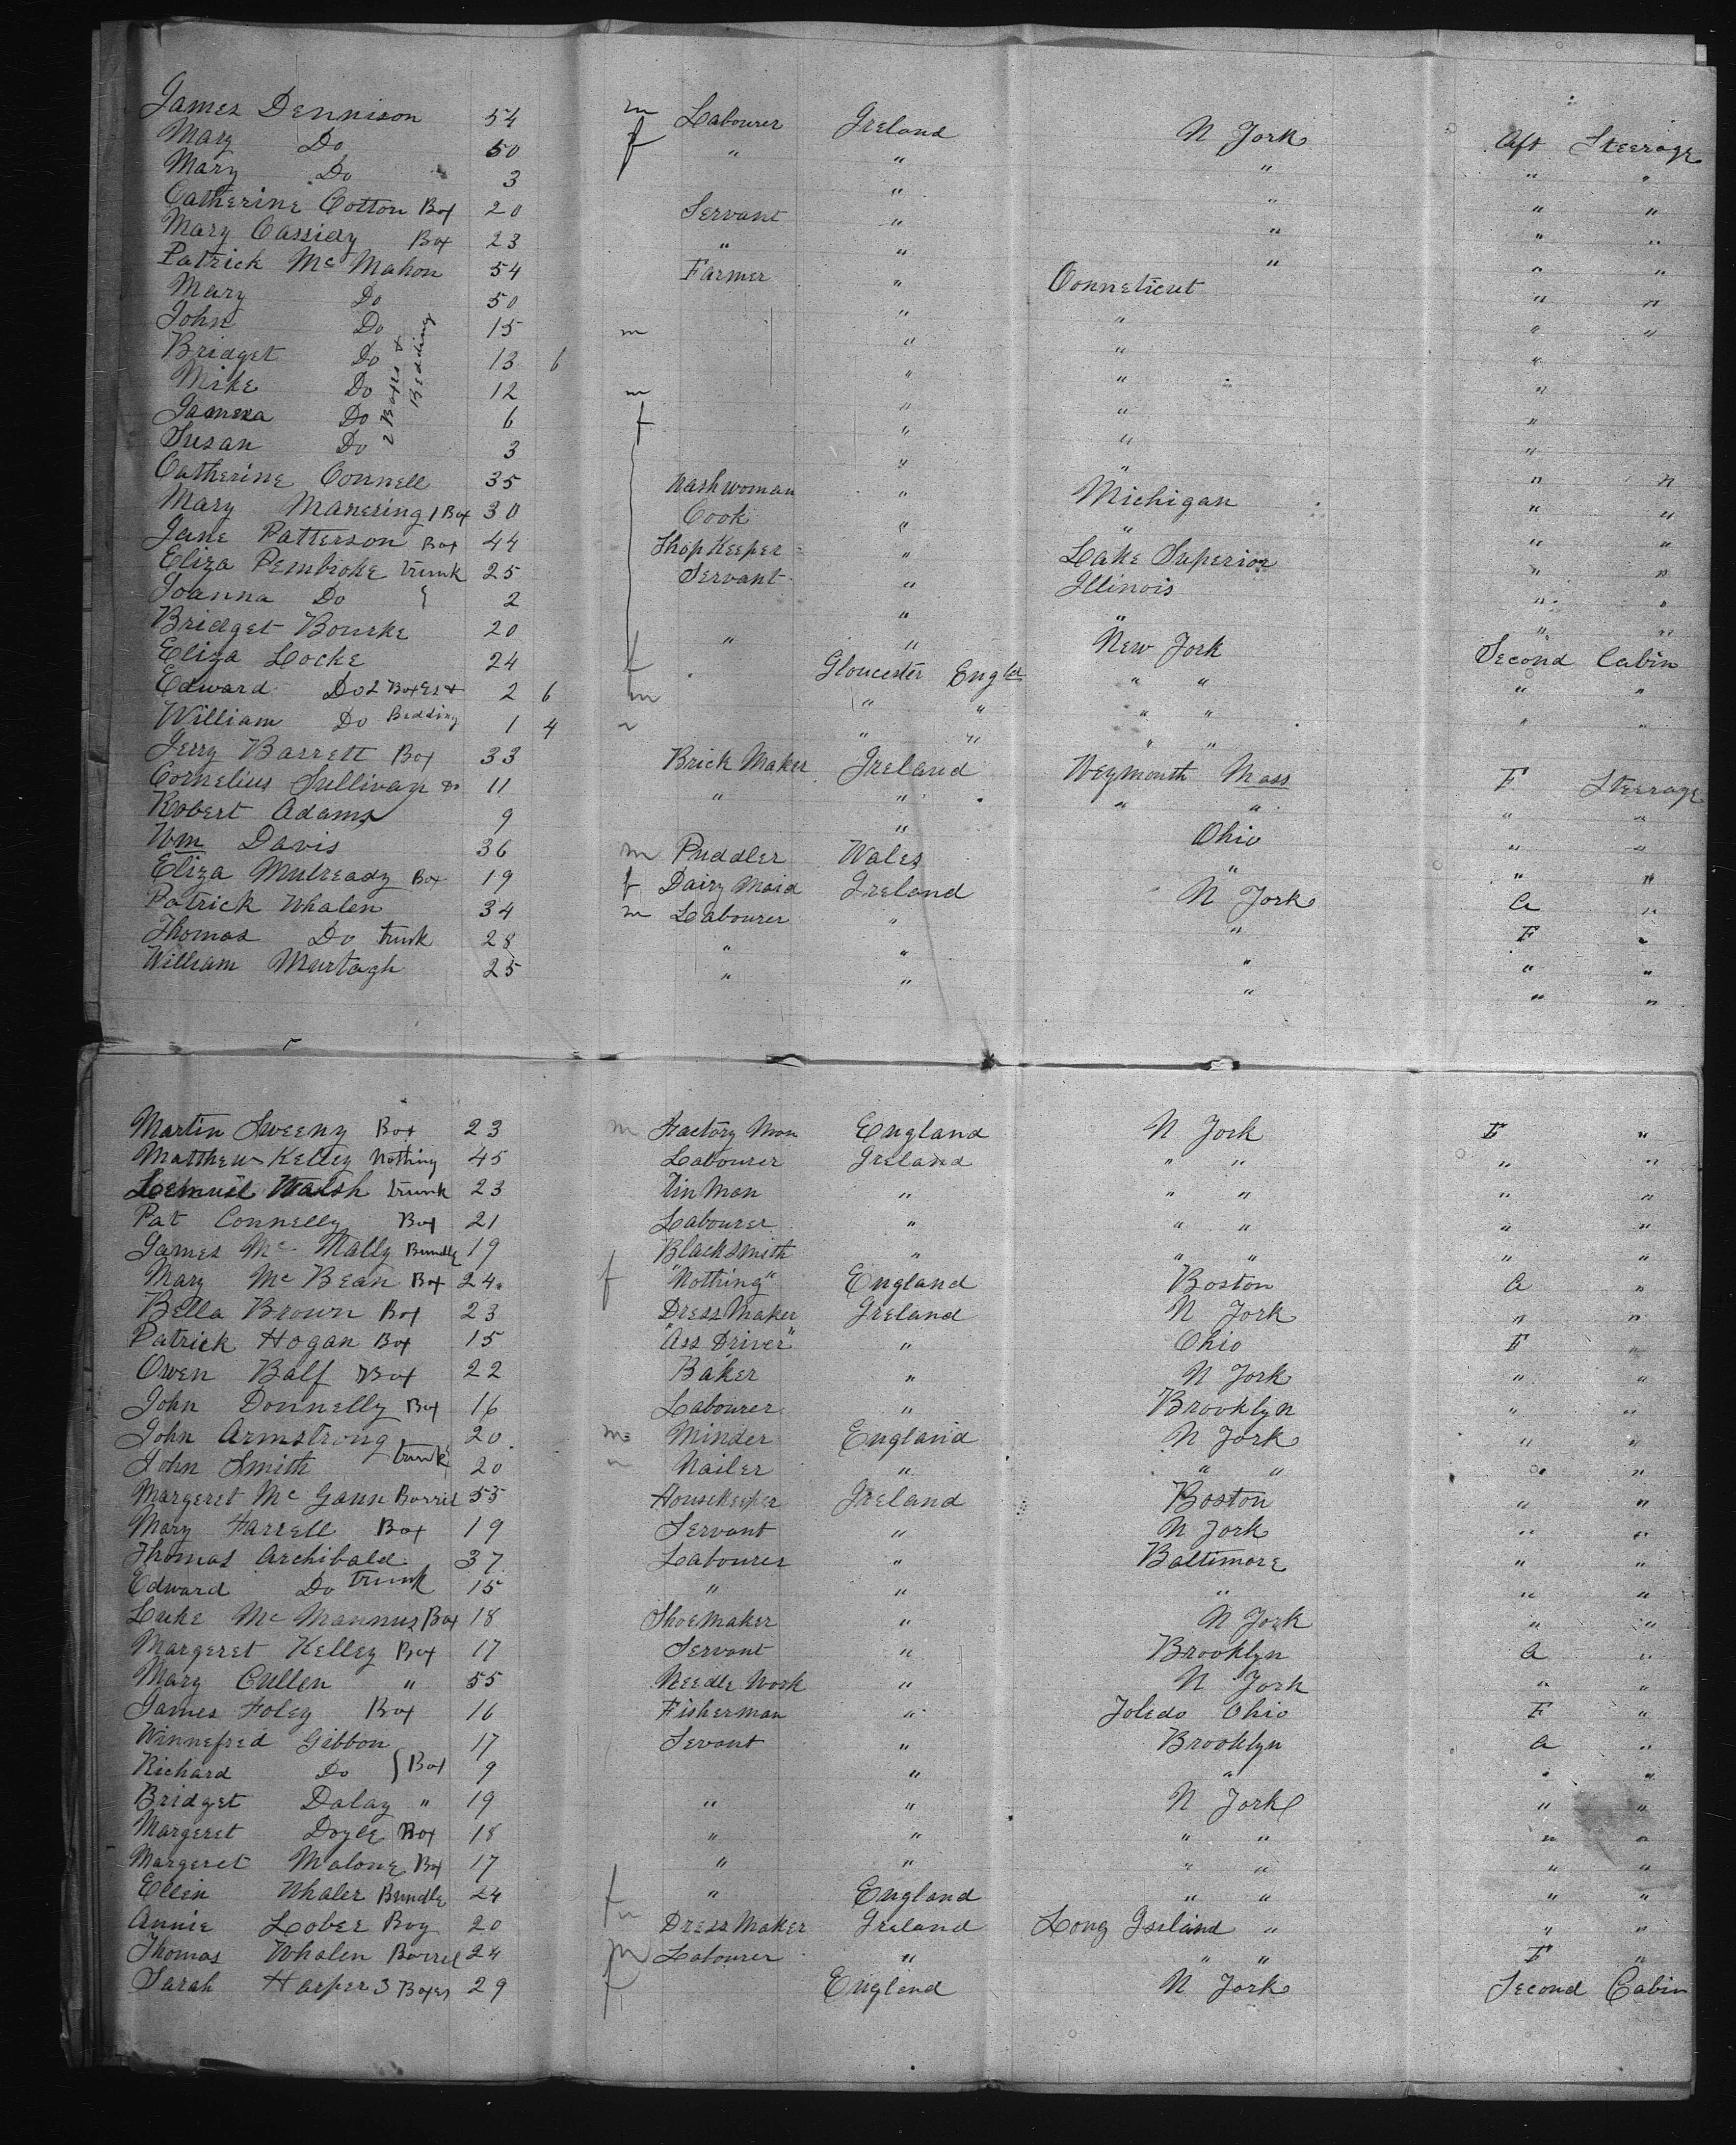 James Dennison 54 m Labourer Ireland N York Aft Steerage
Mary Do 50 f " " " " "
Mary Do 3 " " " "
Catherine Cotton Box 20 Servant " " " "
Mary Cassidy Box 23 " " " " "
Patrick Mc Mahon 54 Farmer " Conneticut " "
Mary Do 50 " " " "
John Do 15 m " " "
Bridget Do 13 6 " " "
Mike Do 12 m " " "
James Do 6 f " " "
Susan Do 3 " " " "
2 Boxes & Bedding
Catherine Connell 35 Washwoman " Michigan " "
Mary Manering 1 Box 30 Cook " " " "
Jane Patterson Box 44 Shop Keeper " Lake Superior " "
Eliza Pembroke trunk 25 Servant " Illinois " "
Joanna Do 2 " " " "
Bridget Bourke 20 " " New York
Eliza Locke 24 f Gloucester Engld " " Second Cabin
Edward Do 2 Boxes & 2 6 m " " " " " "
William Do Bedding 1 4 " " " " " "
Jerry Barrett Box 33 Brick Maker Ireland Weymouth Mass F Steerage
Cornelius Sullivan Do 11 " " " " " "
Robert Adams 9 " Ohio " "
Wm Davis 36 m Puddler Wales " " "
Eliza Mulready Box 19 f Dairy Maid Ireland N York a "
Patrick Whalen 34 m Labourer " " F "
Thomas Do trunk 28 " " " " "
William Murtagh 25 " " " " "
Martin Sweeny Box 23 m Factory Man England N York F "
Matthew Kelley Nothing 45 Labourer Ireland " " " "
Lemuel Walsh trunk 23 Tin Man " " " " "
Pat Connelly Box 21 Labourer " " " " "
James Mc Nally Bundle 19 Blacksmith " " " " "
Mary Mc Bean Box 24 f "Nothing" England Boston a "
Bella Brown Box 23 Dress Maker Ireland N York " "
Patrick Hogan Box 15 "Ass Driver" " Ohio F "
Owen Balf Box 22 Baker " N York " "
John Donnelly Box 16 Labourer " Brooklyn " "
John Armstrong 20 m Minder England N York " "
John Smith trunk 20 Nailer " " " " "
Margeret Mc Gann Barrel 55 Housekeeper Ireland Boston " "
Mary Farrell Box 19 Servant " N York " "
Thomas Archibald 37 Labourer " Baltimore " "
Edward Do trunk 15 " " " " "
Luke Mc Mannus Box 18 Shoemaker " N York " "
Margeret Kelley Box 17 Servant " Brooklyn a "
Mary Cullen " 55 Needle Work " N York " "
James Foley Box 16 Fisherman " Toledo Ohio F "
Winnefred Gibbon 17 Sevant " Brooklyn a "
Richard Do } Box 9 " " " "
Bridget Dalay " 19 " " N York " "
Margeret Doyle Box 18 " " " " " "
Margeret Malone Box 17 " " " " " "
Ellen Whaler Bundle 24 f " England " " " "
Annie Lober Box 20 Dress Maker Ireland Long Iseland " " "
Thomas Whalen Barrel 24 m Labourer " " " F "
Sarah Harper 3 Boxes 29 f England N York Second Cabin